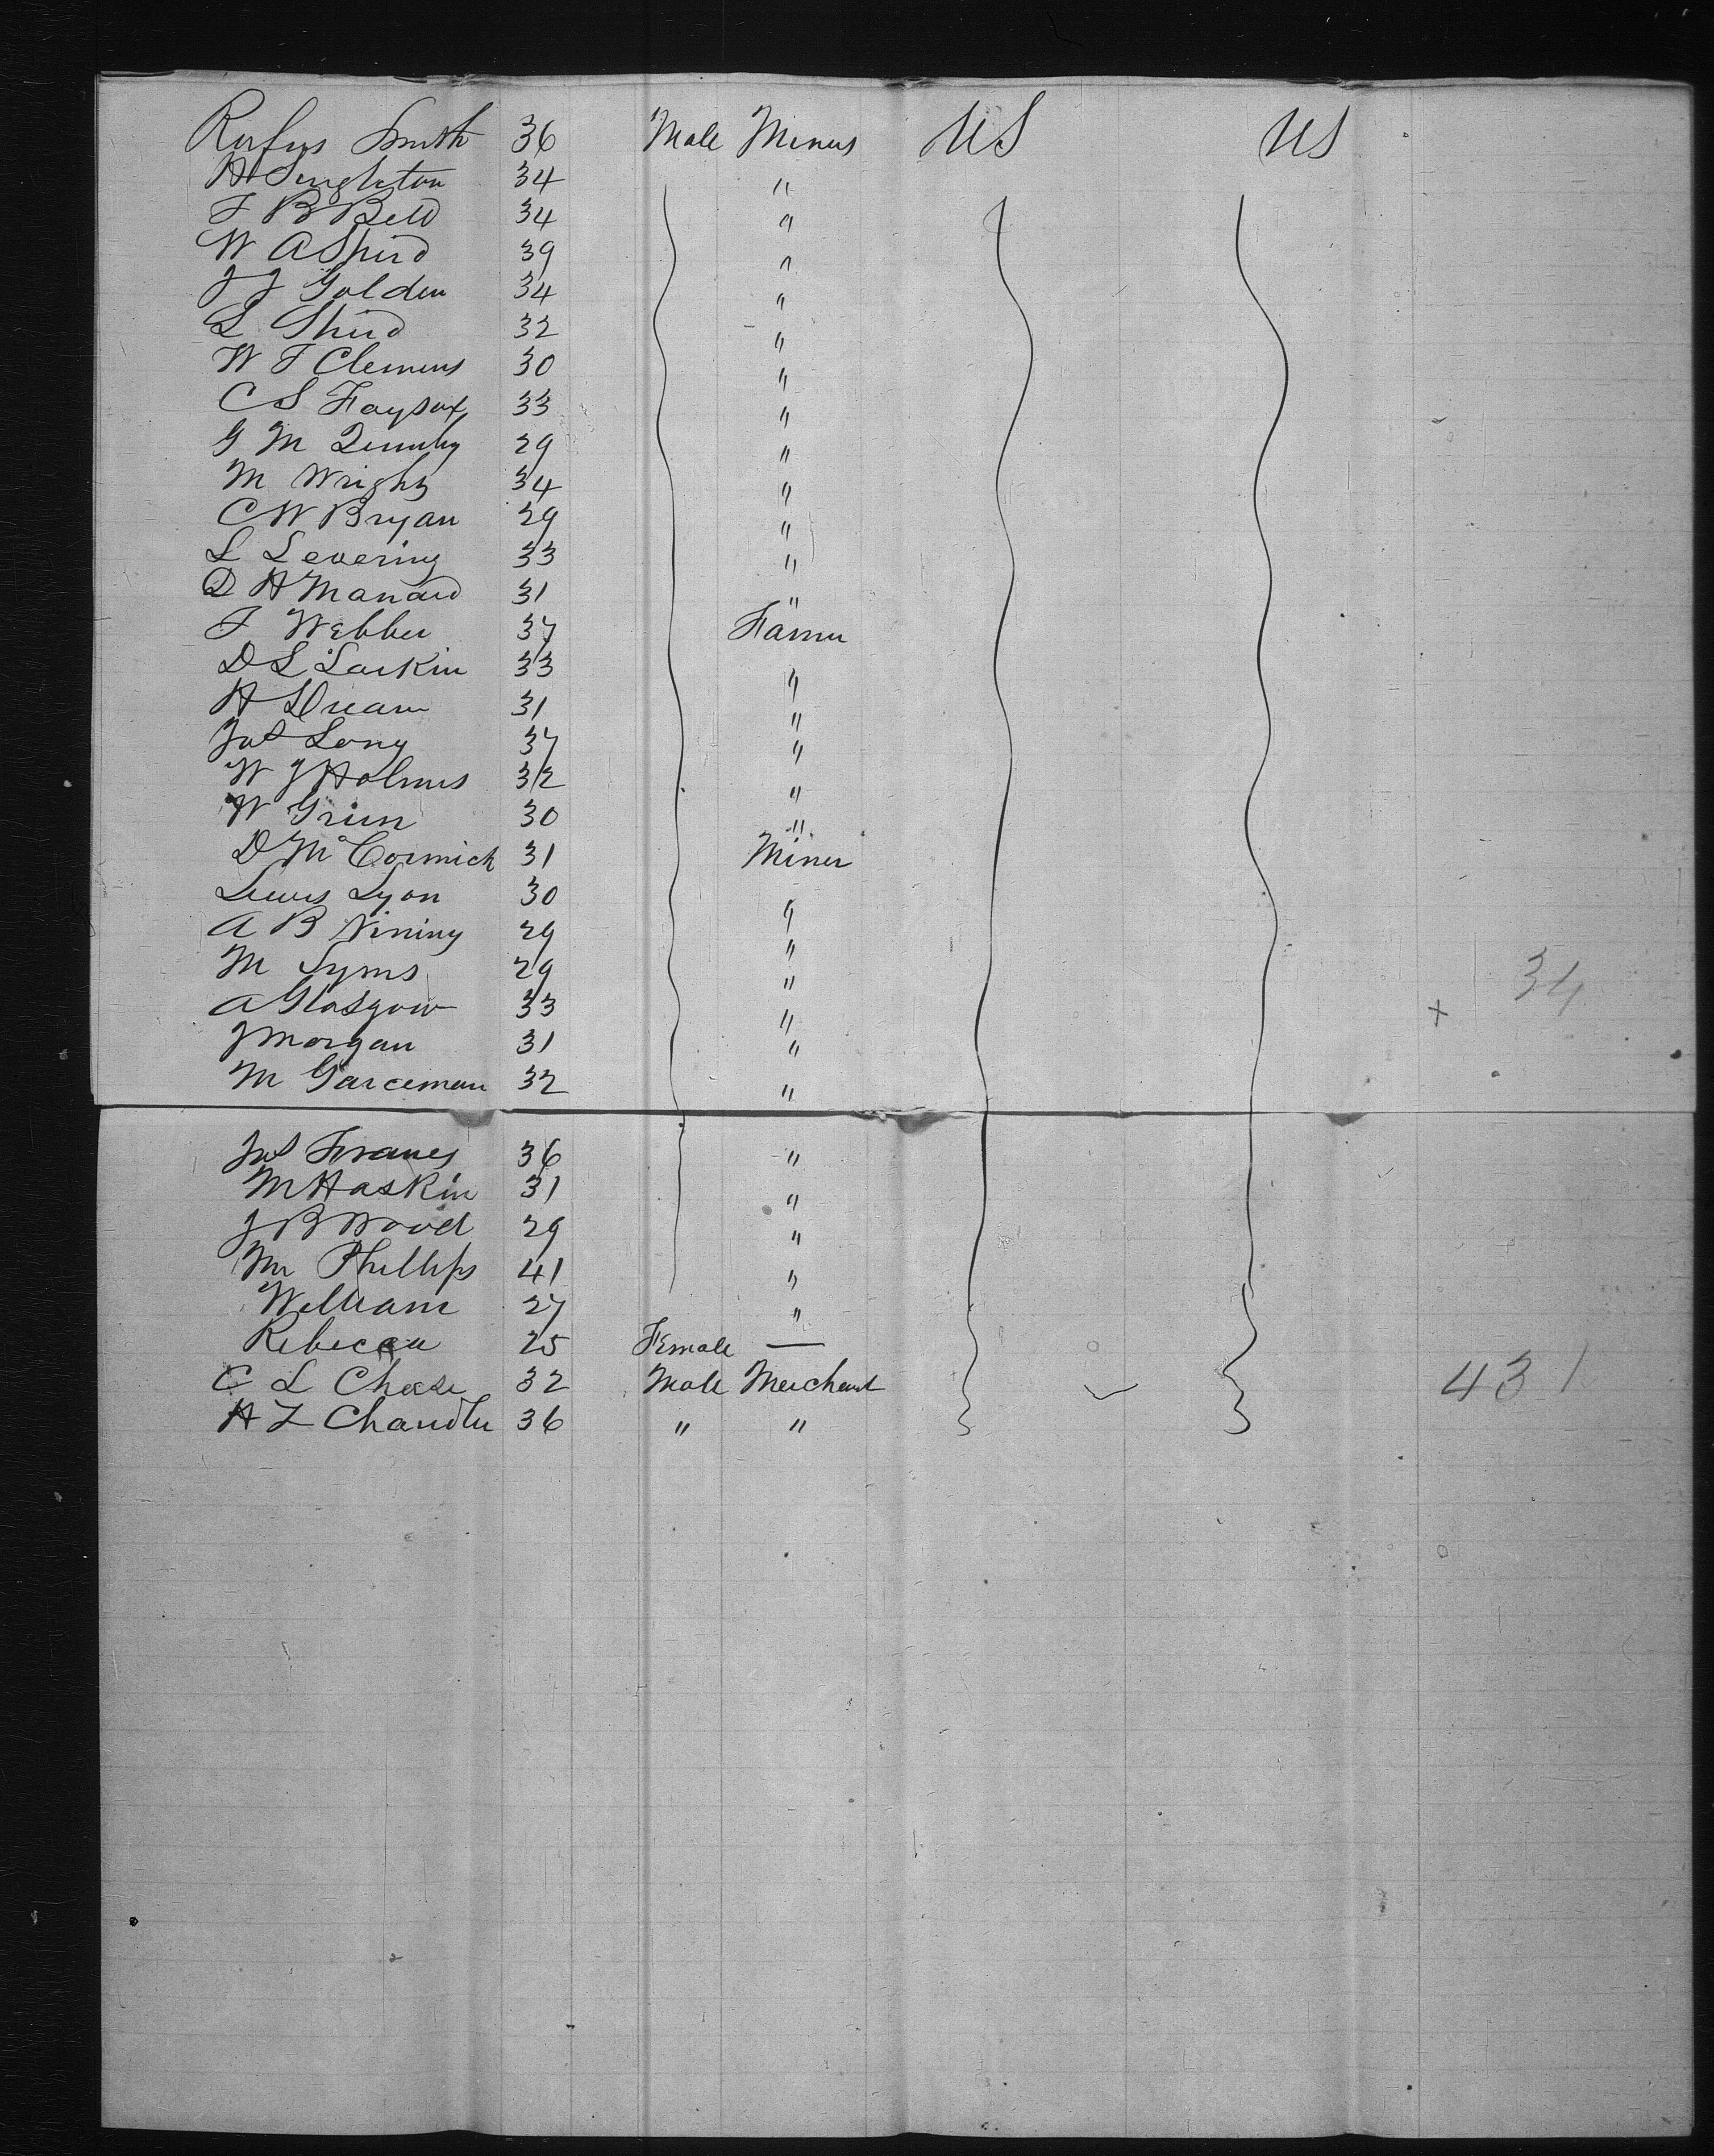 Rufus Smith 36 Male Miners US US
H Singleton 34 "
F B Bell 34 "
W A Shird 39 "
J J Golden 34 "
L Shird 32 "
W F Clemens 30 "
C S Faysox 33 "
G M Quimby 29 "
M Wright 34 "
C W Bryan 29 "
L Levering 33 "
D H Manard 31 "
F Webber 37 Farmer
D L Larkin 33 "
H 31 "
Jas Long 37 "
W J Holmes 32 "
W Grim 30 "
D McCormick 31 Miner
Lewis Lyon 30 "
A B Vining 29 "
M Syms 29 " 34
A Glasgow 33 " x
J Morgan 31 "
M Garceman 32 "
Jas Francs 36 "
M Haskin 31 "
J B Wood 29 "
Mr Phillips 41 "
William 27 "
Rebecca 25 Female —
C L Cheese 32 Male Merchant 431
H L Chandler 36 " "